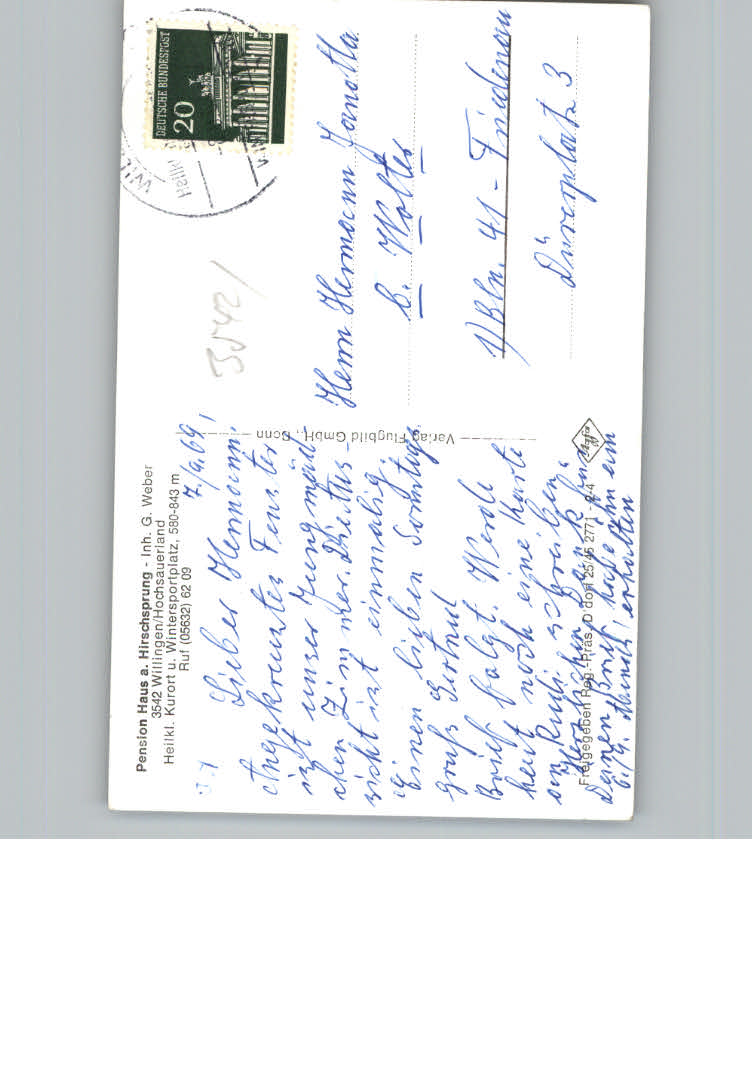 Pension Haus a. Hirschsprung - Inh. G. Weber
3542 Willingen/Hochsauerland
Heilkl. Kurort u. Wintersportplatz, 580-843 m
Ruf (05632) 62 09
7./9.69!
Lieber Hermann.
Angekreuztes Fenster
ist unser Jungmäd-
chen Zimmer. Die Aus-
sicht ist einmalig.
Einen lieben Sonntags
gruß Gertrud
Brief folgt. Werde
heut noch eine Karte
an Rudi schreiben.
Herzlichen Dank für
Deinen Brief habe ihn am
6./9. erhalten
Freigegeben Reg.-Präs. D'dorf 25/45 2771 - 2-4
Verlag Flugbild GmbH., Bonn
Agfa
DEUTSCHE BUNDESPOST
20
3542
Herrn Hermann Janotta
b. Wolter
1/Bln. 41 - Friedenau
Dürerplatz 3